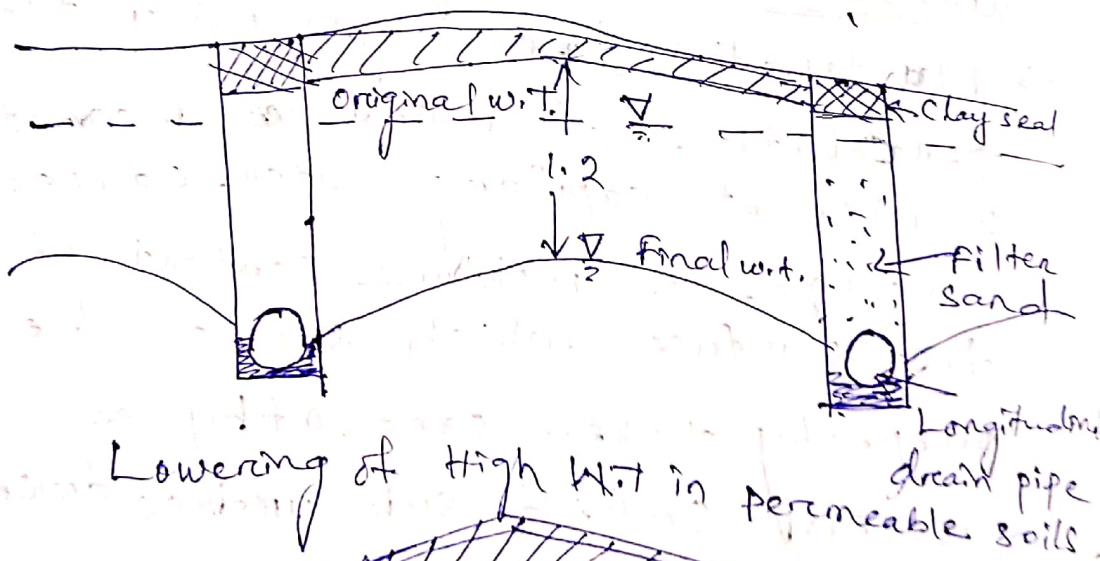 Original w.t.
Clay seal
1.2
Final w.t.
Filter
sand
Longitudinal
drain pipe
Lowering of High W.T in permeable soils